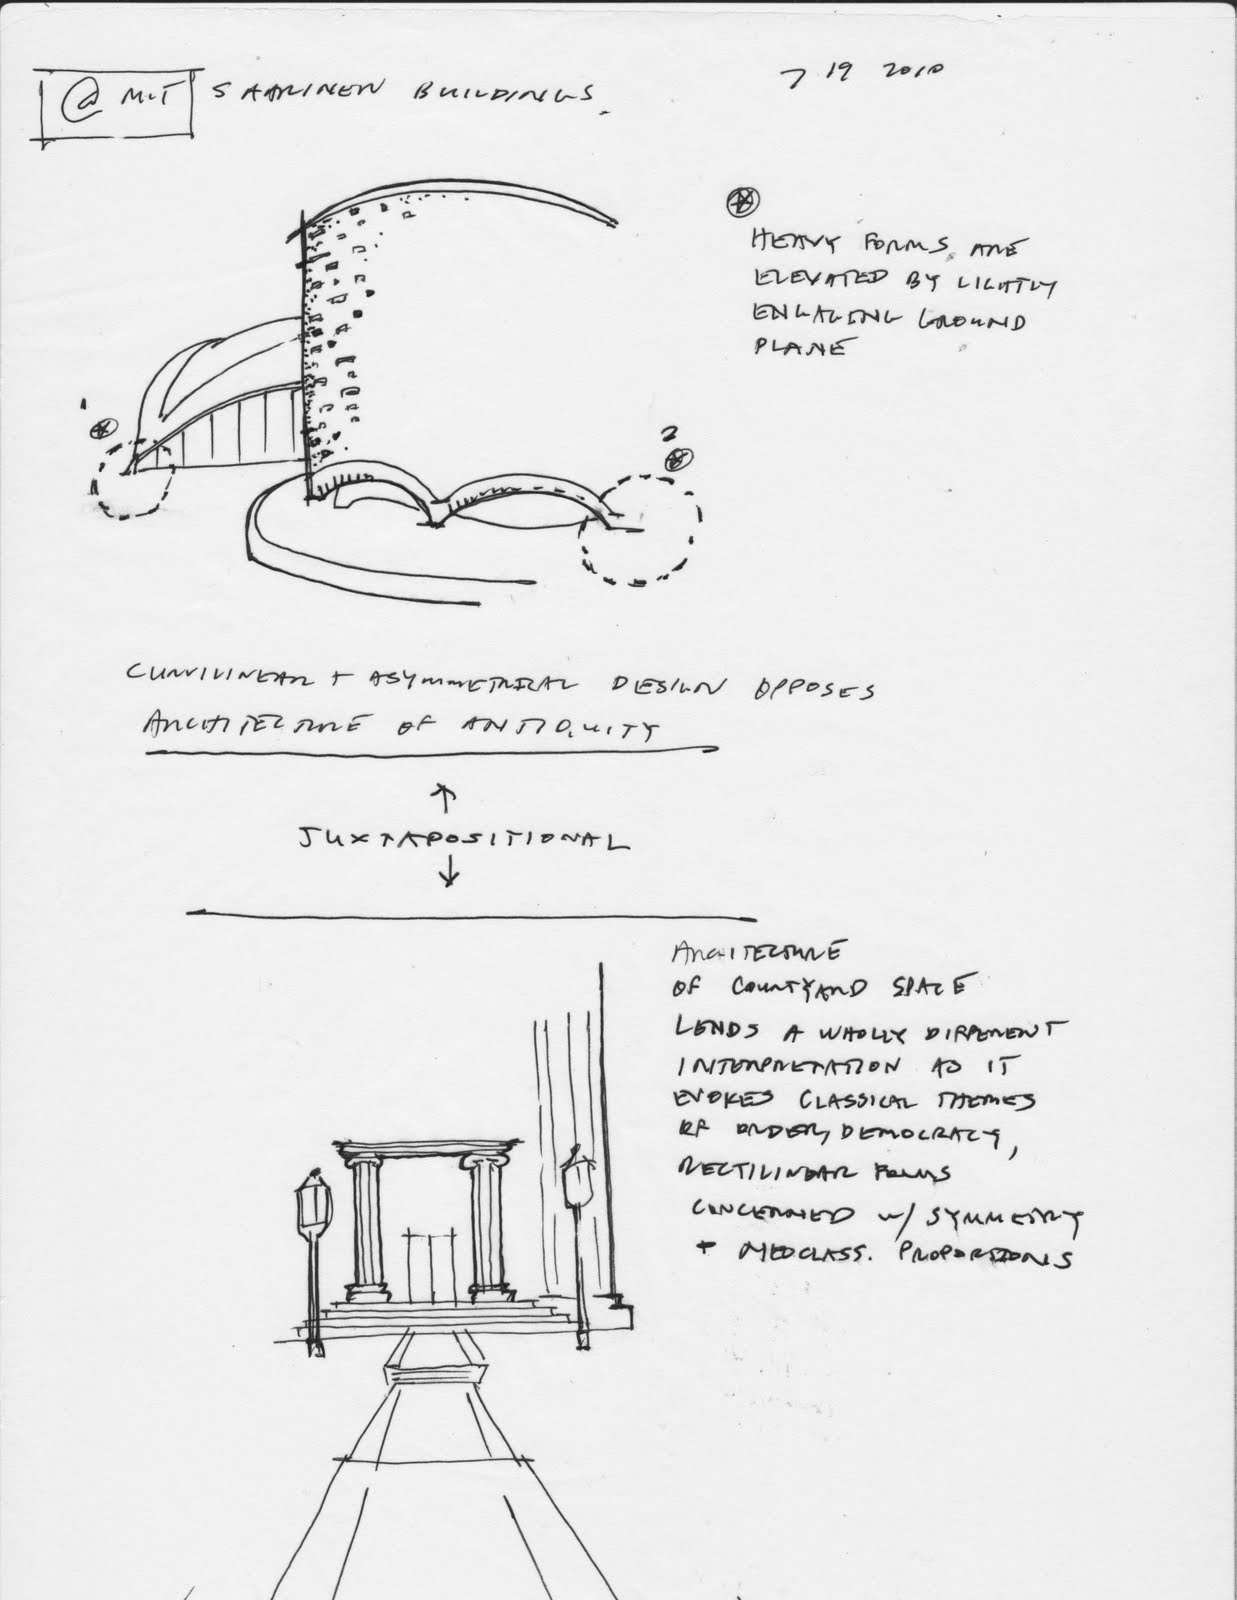 @ MIT SAARINEN BUILDINGS.
7 19 2010
HEAVY FORMS ARE
ELEVATED BY LIGHTLY
ENGAGING GROUND
PLANE
1
2
CURVILINEAR + ASYMMETRICAL DESIGN OPPOSES
ARCHITECTURE OF ANTIQUITY
↑
JUXTAPOSITIONAL
↓
ARCHITECTURE
OF COURTYARD SPACE
LENDS A WHOLLY DIFFERENT
INTERPRETATION AS IT
EVOKES CLASSICAL THEMES
OF ORDER, DEMOCRACY,
RECTILINEAR FORMS
CONCERNED W/ SYMMETRY
+ NEOCLASS. PROPORTIONS